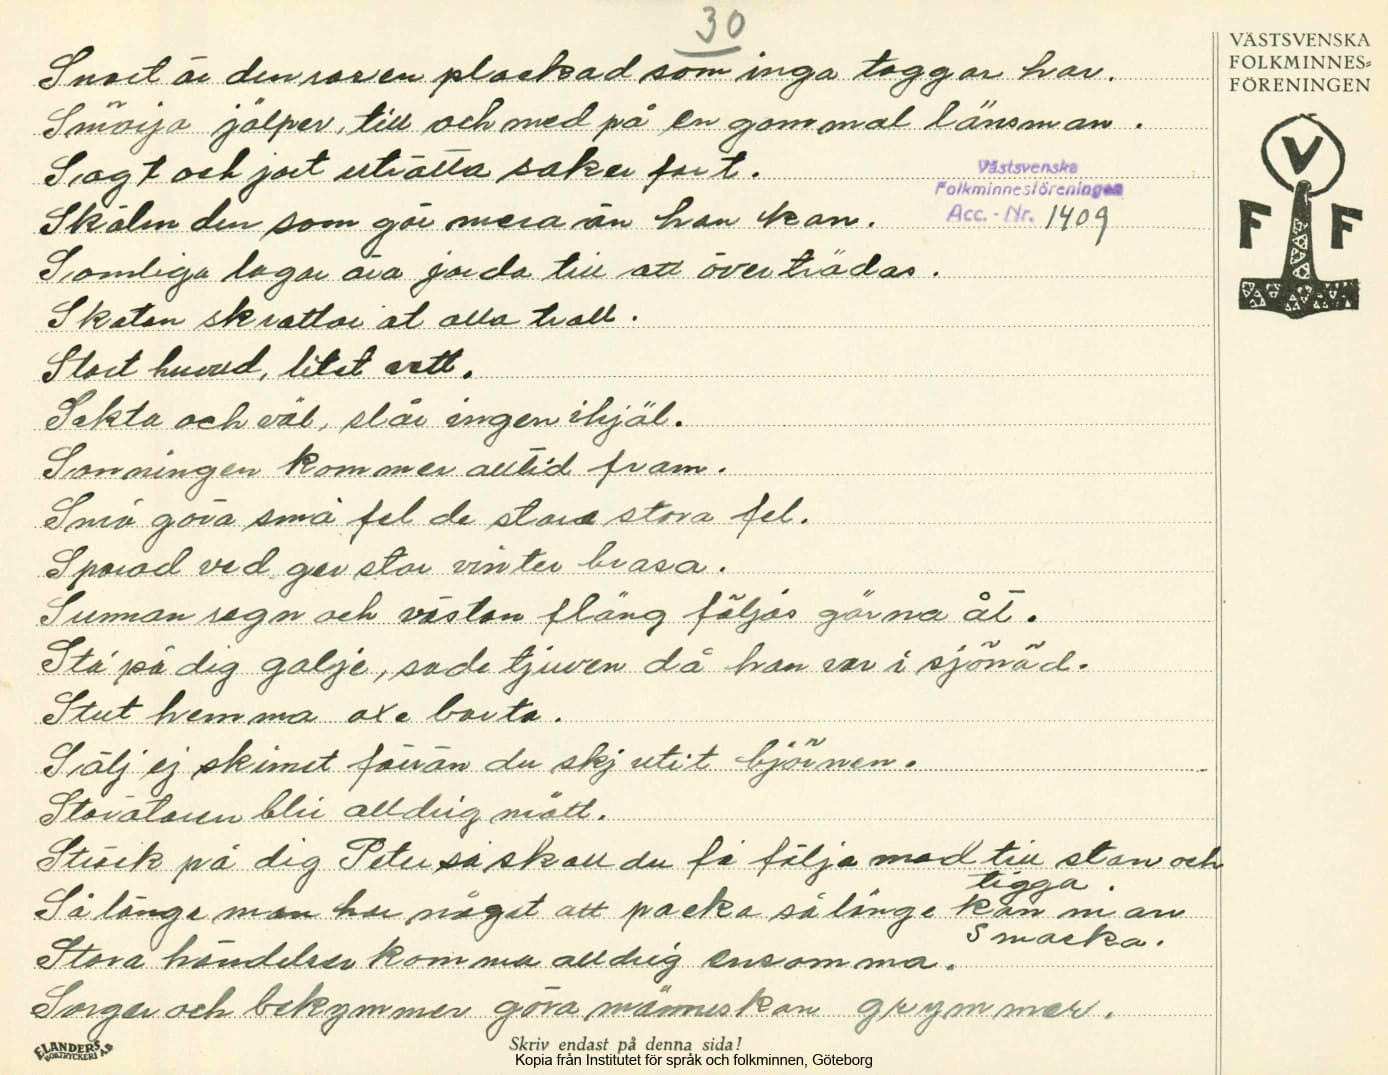 30
VÄSTSVENSKA
FOLKMINNES-
FÖRENINGEN
V
F F
Snart är den rosen plockad som inga taggar har.
Smörja jälper, till och med på en gammal länsman.
Sagt och jort uträtta saker fort.
Skälm den som gör mera än han kan.
Västsvenska
Folkminnesföreningen
Acc. - Nr. 1409
Somliga lagar ära jorda till att överträdas.
Skatan skrattar åt alla trall.
Stort huvud, litet vett.
Sakta och väl, slår ingen ihjäl.
Sanningen kommer alltid fram.
Små göra små fel de stora stora fel.
Sparad ved ger stor vinter brasa.
Sunnan regn och västan fläng följas gärna åt.
Stå på dig galje, sade tjuven då han var i sjönöd.
Stut hemma oxe borta.
Sälj ej skinnet förrän du skjutit björnen.
Storätaren blir alldrig mätt.
Sträck på dig Peter så skall du få följa med till stan och
tigga.
Så länge man har något att packa så länge kan man
smacka.
Stora händelser komma alldrig ensomma.
Sorger och bekymmer göra människan grymmer.
ELANDERS
BOKTRYCKERI A.B
Skriv endast på denna sida!
Kopia från Institutet för språk och folkminnen, Göteborg